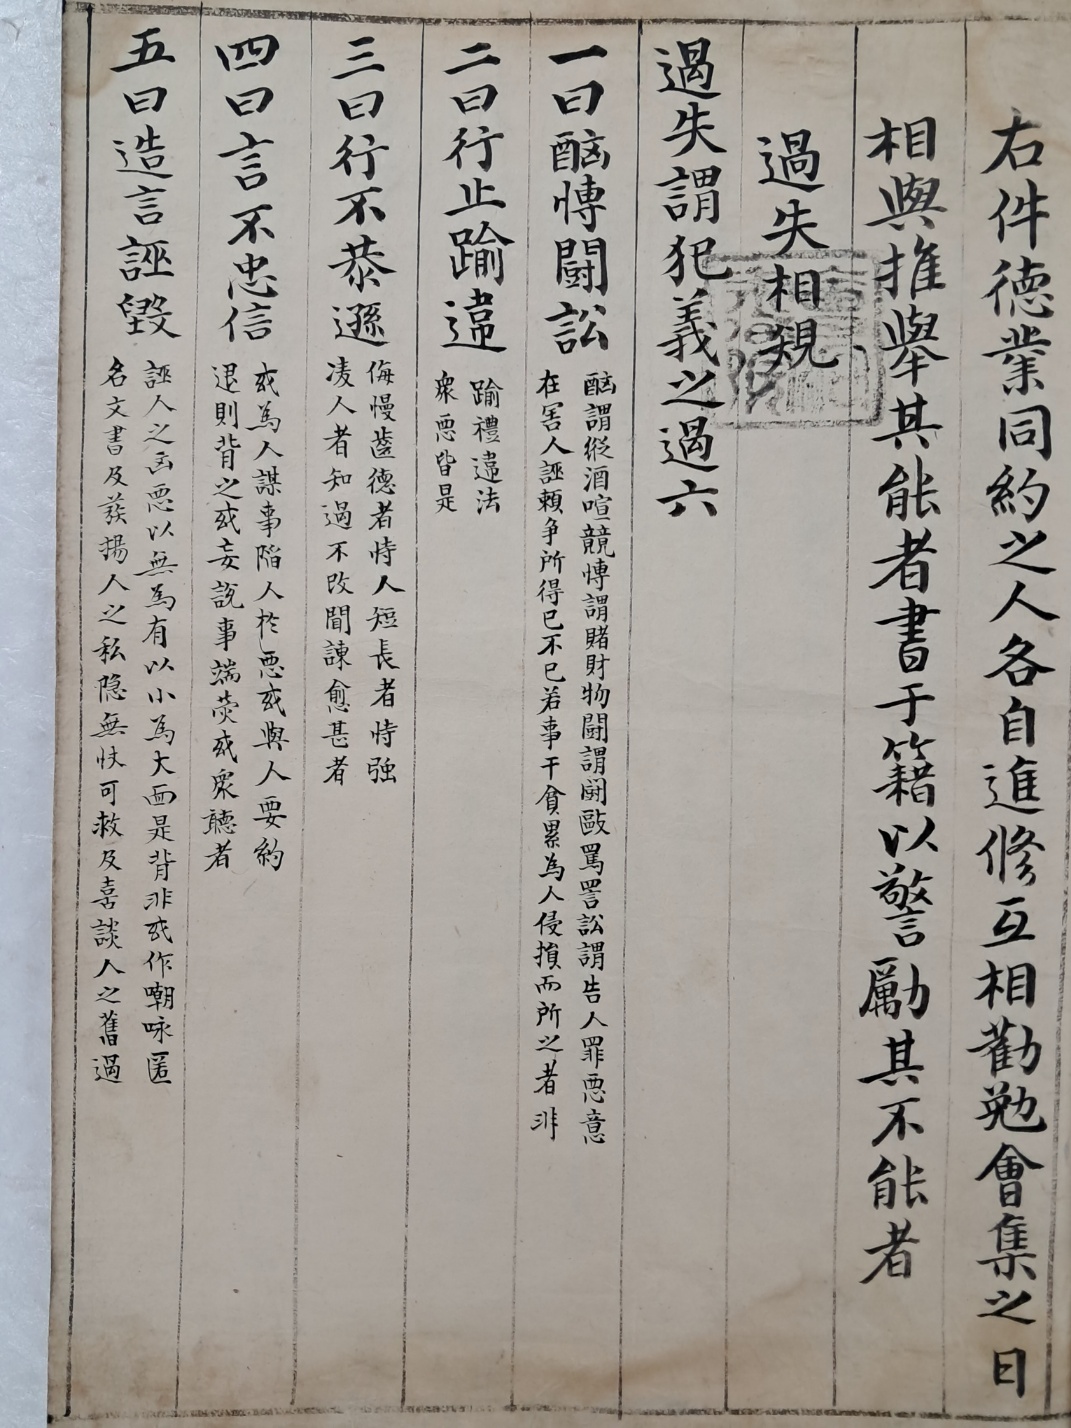 右件德業同約之人各自進修互相勸勉會集之日
相與推舉其能者書于籍以警勵其不能者
過失相規
過失謂犯義之過六
一曰酗愽鬪訟
酗謂縱酒喧競愽謂賭財物鬪謂鬪毆罵詈訟謂告人罪惡意
在害人誣賴争所得已不已若事干貟累為人侵損而所之者非
二曰行止踰違
踰禮違法
衆惡皆是
三曰行不恭遜
侮慢齒德者恃人短長者恃强
凌人者知過不改聞諌愈甚者
四曰言不忠信
或為人謀事陷人於惡或與人要約
退則背之或妄說事端熒或衆聽者
五曰造言誣毀
誣人之㐫惡以無為有以小為大面是背非或作嘲咏匿
名文書及發揚人之私隐無狀可救及喜談人之舊過